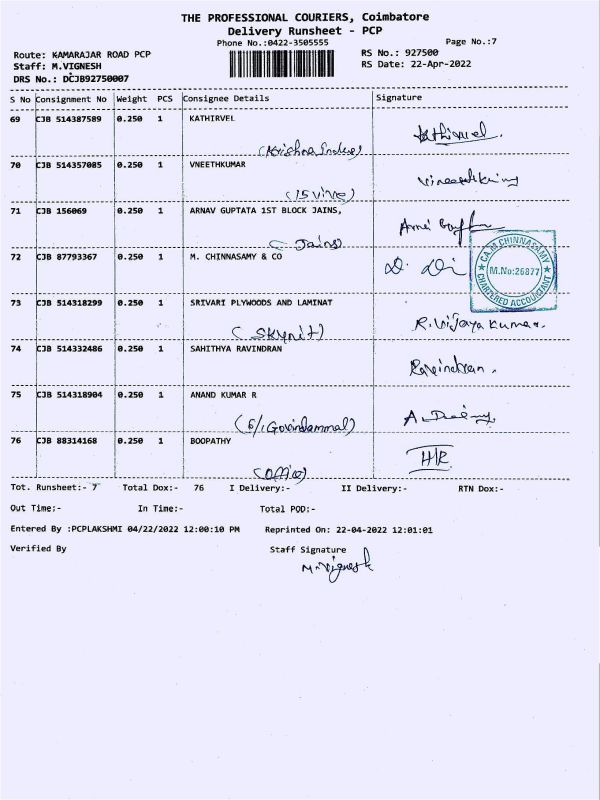 THE PROFESSIONAL COURIERS, Coimbatore
Delivery Runsheet - PCP
Phone No.:0422-3505555 Page No.:7
Route: KAMARAJAR ROAD PCP RS No.: 927500
Staff: M.VIGNESH RS Date: 22-Apr-2022
DRS No.: DCJB92750007
S No Consignment No Weight PCS Consignee Details Signature
69 CJB 514387589 0.250 1 KATHIRVEL
Kathirvel.
(Krishna
70 CJB 514357085 0.250 1 VNEETHKUMAR
71 CJB 156069 0.250 1 ARNAV GUPTATA 1ST BLOCK JAINS,
(Jains)
72 CJB 87793367 0.250 1 M. CHINNASAMY & CO
CA.M.CHINNASAMY
M.No:26877
CHARTERED ACCOUNTANT
73 CJB 514318299 0.250 1 SRIVARI PLYWOODS AND LAMINAT
R.Vijaya Kumar.
74 CJB 514332486 0.250 1 SAHITHYA RAVINDRAN
Ravindran.
75 CJB 514318904 0.250 1 ANAND KUMAR R
(S/; Govindammal)
76 CJB 88314168 0.250 1 BOOPATHY
HR
(Office)
Tot. Runsheet:- 7 Total Dox:- 76 I Delivery:- II Delivery:- RTN Dox:-
Out Time:- In Time:- Total POD:-
Entered By :PCPLAKSHMI 04/22/2022 12:00:10 PM Reprinted On: 22-04-2022 12:01:01
Verified By Staff Signature
M.Vignesh